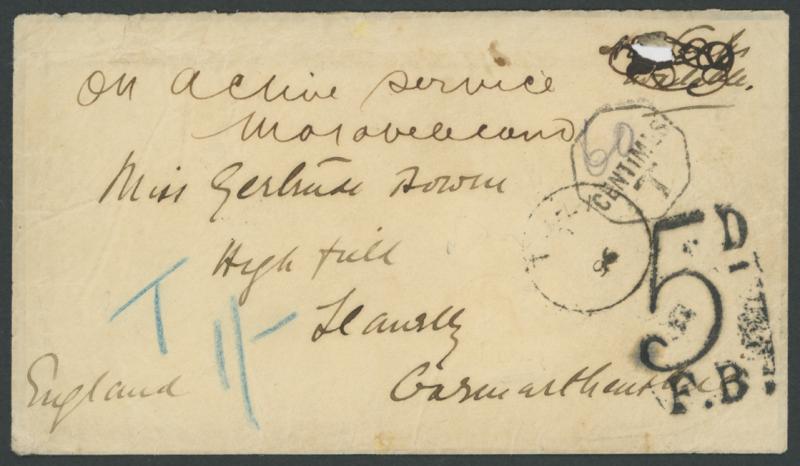 On Active Service
Miss Gertrude Bowen
High Hill
Llanelly
Carmarthenshire
England
T
1/-
60
CENTIMES
T
96
5D
F.B.